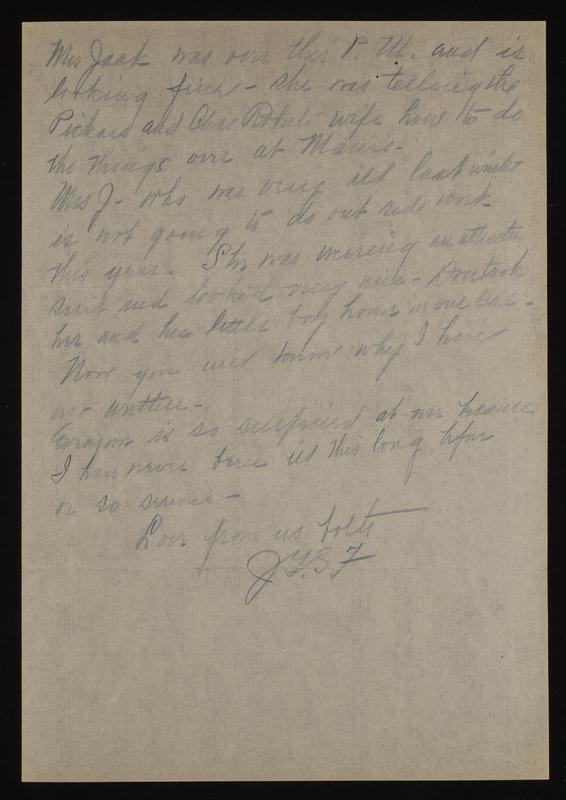 Mrs Jack was over this P. M. and is
looking fine - She was telling the
Pickars and Chas wife how to do
the things over at Mains.
Mrs J - who was very ill last winter
is not going to do out side work
this year. She was wearing an attractive
suit and looked very nice - Don took
her and her little boy home in our car -
Now you will know why I have
not written -
Everyone is so surprised at me because
I have never been ill this long before
or so serious -
Love from us both
J.G.S F